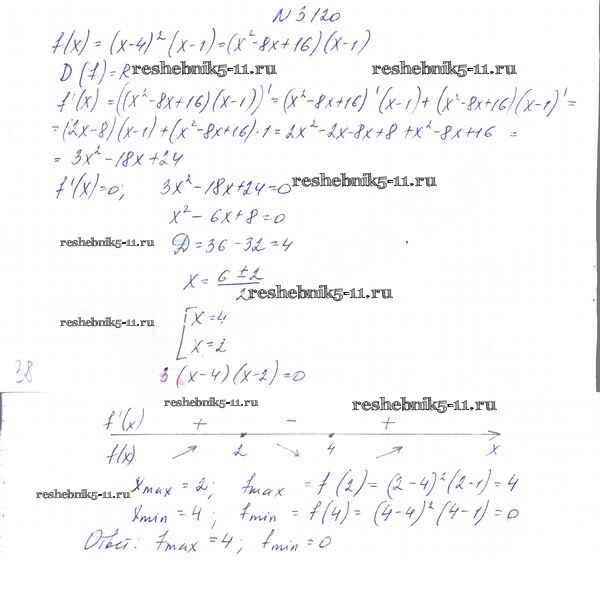 N 3120
f(x) = (x-4)²(x-1) = (x²-8x+16)(x-1)
D(f) = R reshebnik5-11.ru reshebnik5-11.ru
f'(x) = ((x²-8x+16)(x-1))' = (x²-8x+16)'(x-1) + (x²-8x+16)(x-1)' =
= (2x-8)(x-1) + (x²-8x+16)·1 = 2x²-2x-8x+8+x²-8x+16 =
= 3x²-18x+24
f'(x)=0; 3x²-18x+24=0 reshebnik5-11.ru
x²-6x+8=0
reshebnik5-11.ru D=36-32=4
x = (6±2)/2 reshebnik5-11.ru
reshebnik5-11.ru [x=4
x=2
38 3(x-4)(x-2)=0
reshebnik5-11.ru reshebnik5-11.ru
f'(x) + - +
f(x) ↗ 2 ↘ 4 ↗ x
xmax = 2; fmax = f(2) = (2-4)²(2-1) = 4
reshebnik5-11.ru xmin = 4; fmin = f(4) = (4-4)²(4-1) = 0
Ответ: fmax = 4; fmin = 0